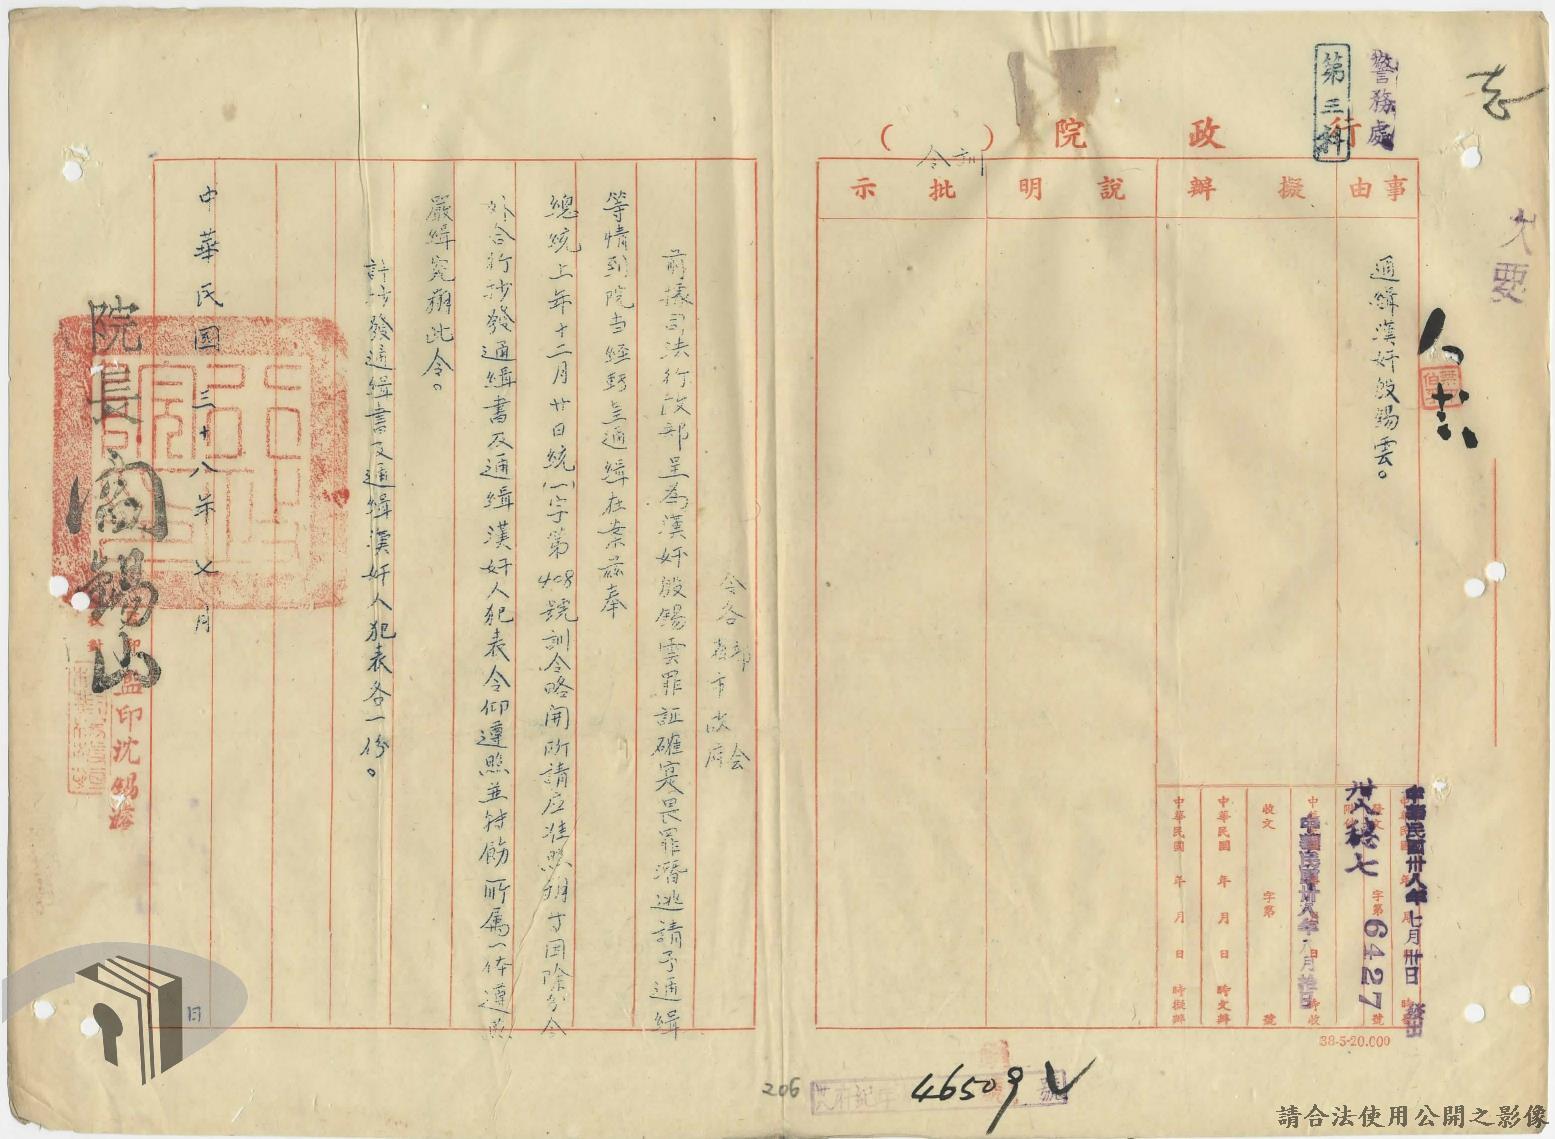 志
警務處
第三科
行政院(訓令)
事由
擬辦
說明
批示
通緝漢奸殷錫雲。
中華民國卅八年七月卅日發出
卅八穗七
字第6427號
收文 字第 號
中華民國 年 月 日 時文辦
中華民國 年 月 日 時擬辦
38-5-20.000
令各部會
省市政府
前據司法行政部呈為漢奸殷錫雲罪証確寔畏罪潛逃請予通緝
等情到院当經轉呈通緝在案茲奉
總統上年十二月廿日統(一)字第408號訓令略開所請应准照辦等因除分令
外合行抄發通緝書及通緝漢奸人犯表令仰遵照並轉飭所属一体遵照
嚴緝究辦此令。
計抄發通緝書及通緝漢奸人犯表各一份。
中華民國三十八年七月 日
院長閻錫山
監印沈錫
校對
206
46509
號
請合法使用公開之影像